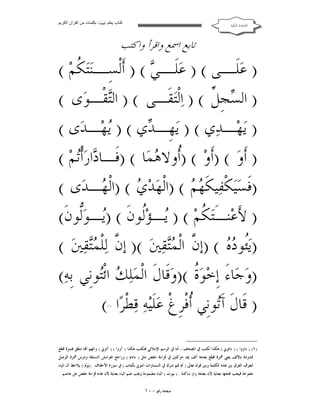 كتاب يتعلم بيوت بكلمات من القرآن الكريم
القاعدة المكية
تابع اسمع واقرأ واكتب
( عَلَـــى ) ( عَلَـــيَّ ) ( أَلْسِـــنَتَكُمْ )
( السِّجِلِّ ) ( اِلْتَقَـــى ) ( التَّقْـــوَى )
( يَهْـــدِي ) ( يَهِـــدِّي ) ( يُهْـــدَى )
( أَوَ ) (أَوْ ) (أُولاهُمَا ) (فَـــادَّارَأْتُمْ )
(فَسَيَكْفِيكَهُمُ ) (الْهَدْيُ ) (الْهُـــدَى )
( لأَعْنَـــتَكُمْ ) ( يُـــؤْلُونَ ) (يُـــوَلُّونَ)
(يَئُودُهُ ) (إِنَّ الْمُتَّقِينَ )( إِنَّ لِلْمُتَّقِينَ )
(وَجَاءَ إِخْوَةُ )(وَقَالَ الْمَلِكُ ائْتُونِي بِهِ)
( قَالَ آتُونِي أُفْرِغْ عَلَيْهِ قِطْرًا )
صفحة رقم ١٠٠